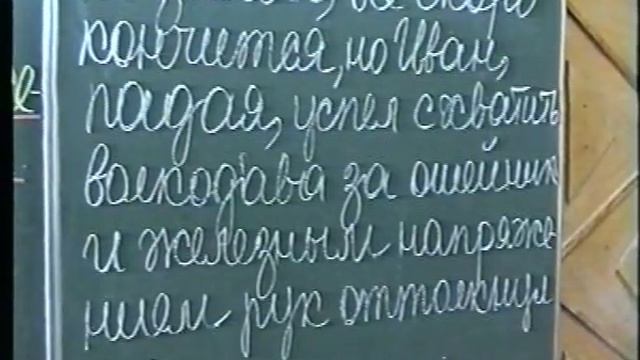 все скоро
кончится, но Иван,
падая, успел схватить
волкодава за ошейник
и железным напряже-
нием рук оттолкнул